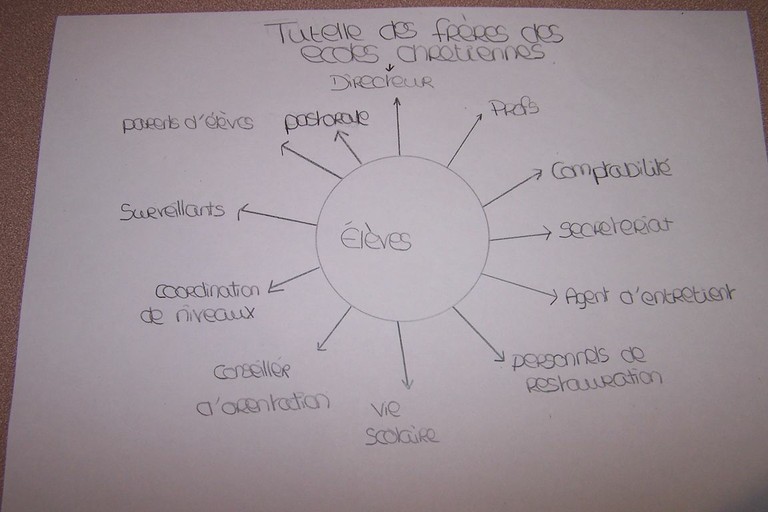 Tutelle des frères des
ecoles chretiennes
Directeur
parents d'élèves
pastorale
Profs
Comptabilité
Surveillants
Élèves
Secreteriat
Coordination
de niveaux
Agent d'entretient
Conseiller
d'orentation
Vie
scolaire
personnels de
restauration